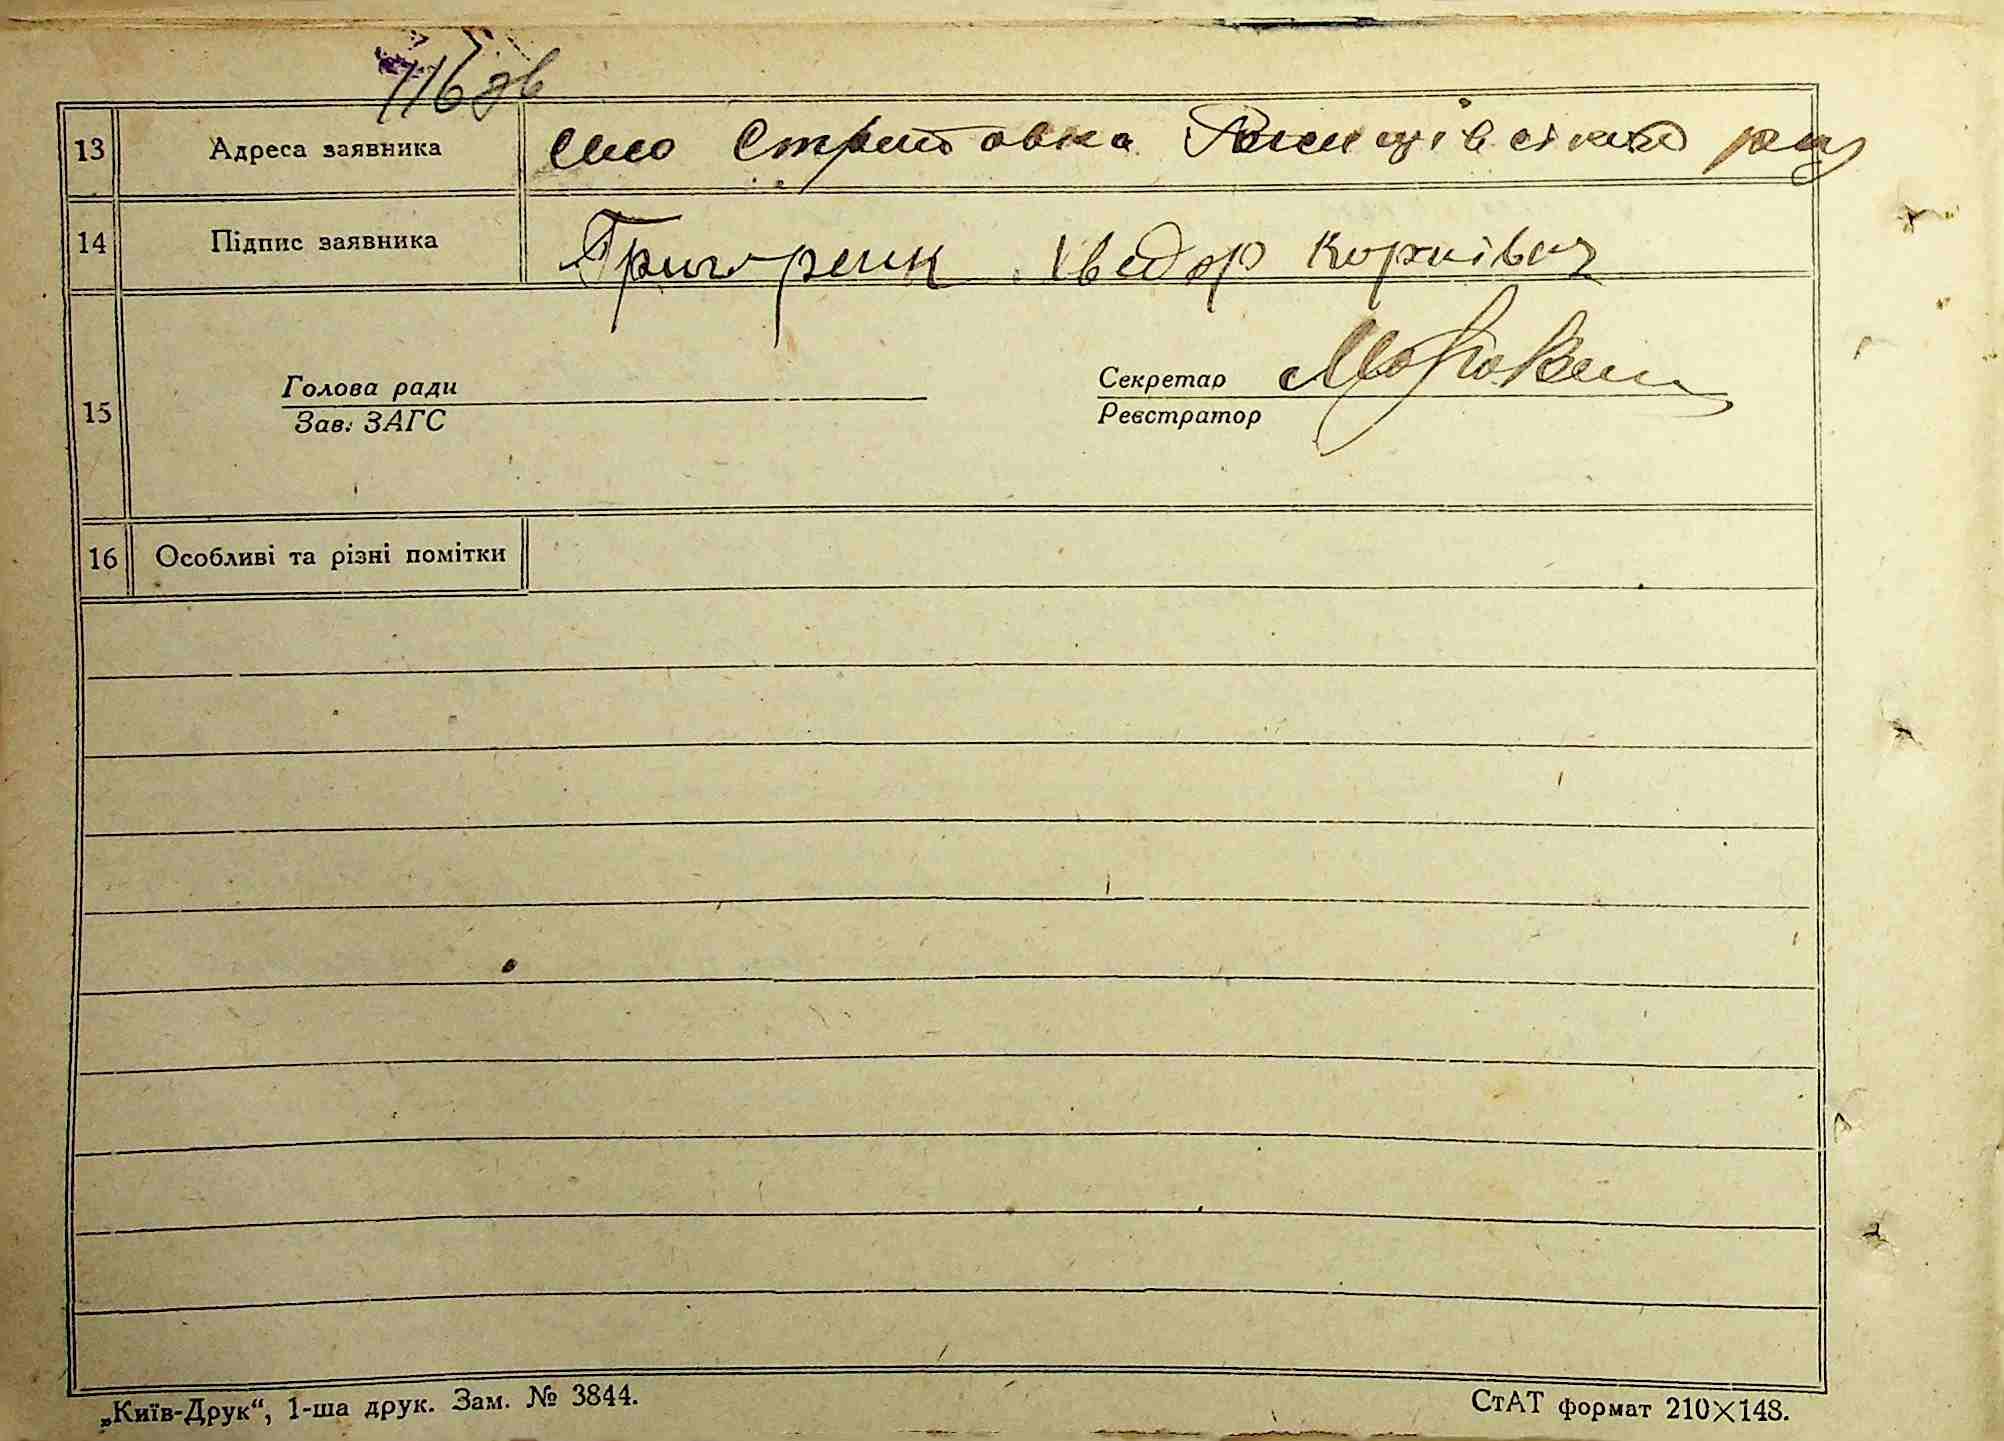 116 зв
13 Адреса заявника село Стритовка Ржищівського р-ну
14 Підпис заявника Григоренк Хведор Корнієвич
Голова ради Секретар
15
Зав. ЗАГС Реєстратор
16 Особливі та різні помітки
„Київ-Друк“, 1-ша друк. Зам. № 3844. СтАТ формат 210×148.